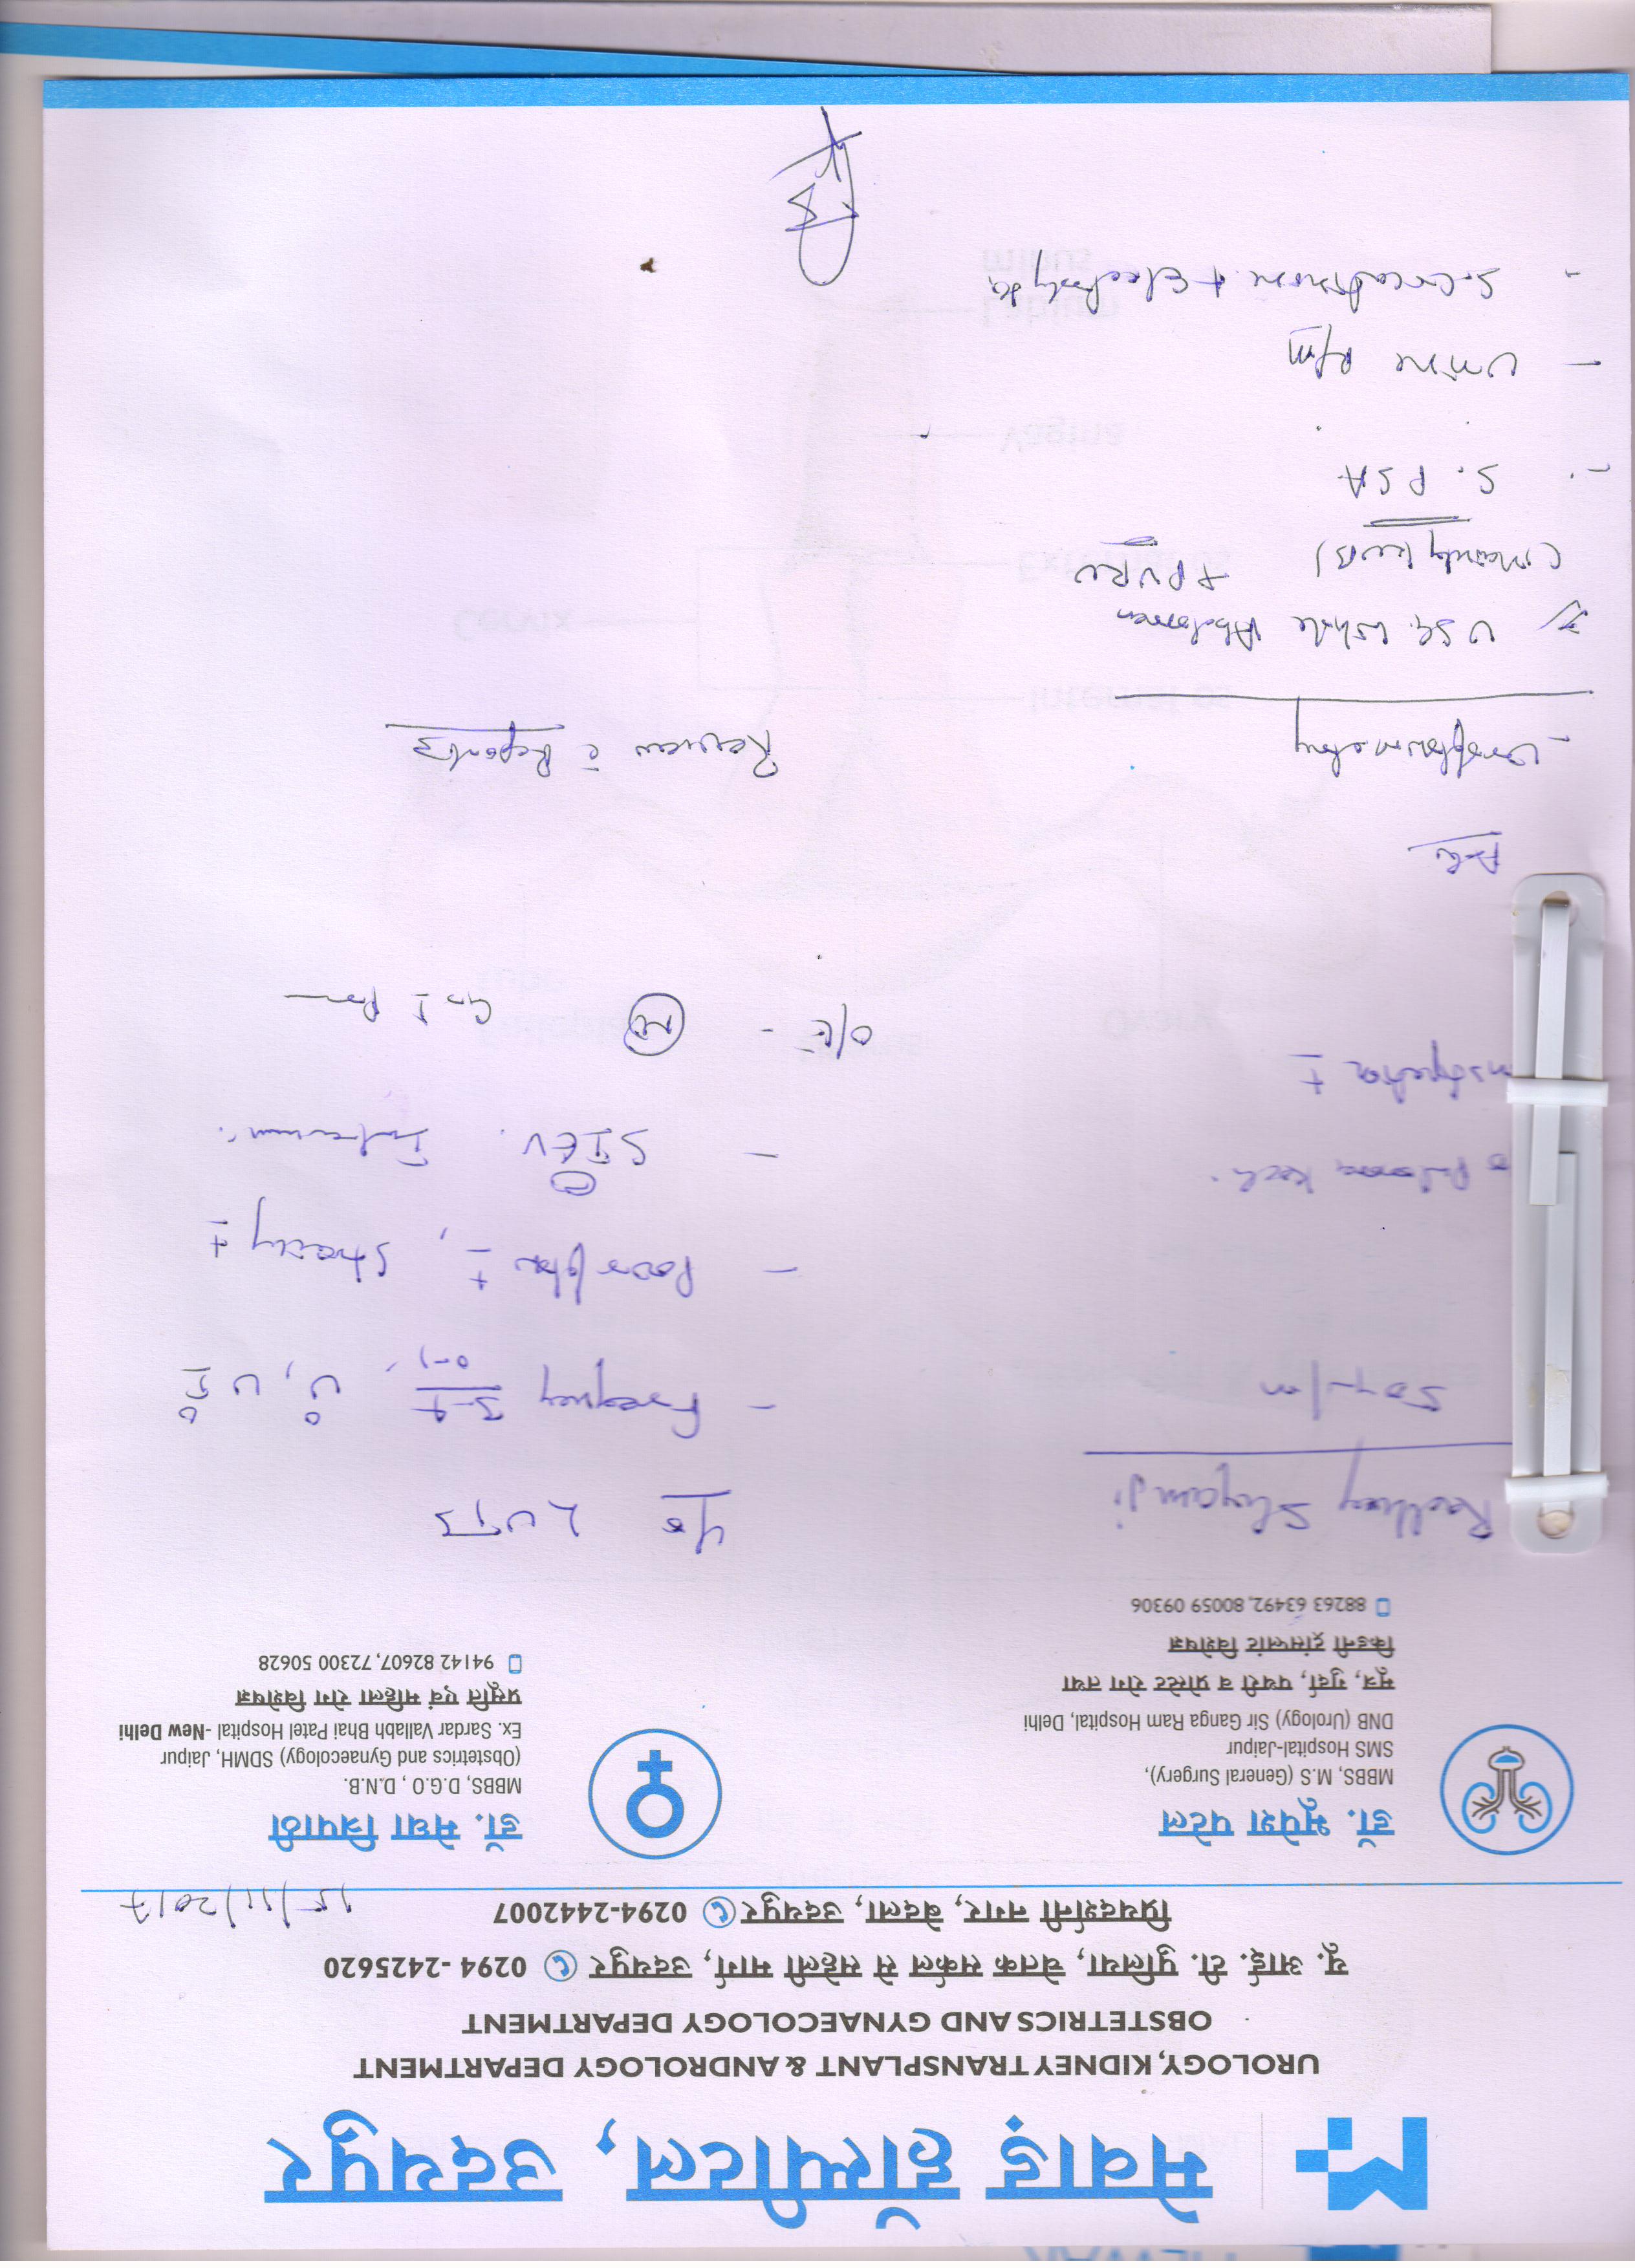 मेवाड़ हॉस्पीटल, उदयपुर
UROLOGY, KIDNEY TRANSPLANT & ANDROLOGY DEPARTMENT
OBSTETRICS AND GYNAECOLOGY DEPARTMENT
यू. आई. टी. पुलिया, चेतक सर्कल से सहेली मार्ग, उदयपुर 0294-2425620
प्रियदर्शनी नगर, बेदला, उदयपुर 0294-2442007
15/11/2017
डॉ. भूपेश पटेल
MBBS, M.S (General Surgery),
SMS Hospital-Jaipur
DNB (Urology) Sir Ganga Ram Hospital, Delhi
मूत्र, गुर्दा, पथरी व प्रोस्टेट रोग तथा
किडनी ट्रांसप्लांट विशेषज्ञ
88263 63492, 80059 09306
डॉ. मेघा त्रिपाठी
MBBS, D.G.O, D.N.B.
(Obstetrics and Gynaecology) SDMH, Jaipur
Ex. Sardar Vallabh Bhai Patel Hospital -New Delhi
प्रसूति एवं महिला रोग विशेषज्ञ
94142 82607, 72300 50628
Radhey Shyam ji
50 yr/m
LUTS
- Frequency 3-4 / 0-1, U, UI
- Poor flow ±, Straining ±
O/E -
Adv
- Uroflowmetry
Review c̄ Reports
USG. Whole Abdomen
(Mainly KUB) + PVRU
- S. PSA
- Urine R/M
- S. Creatinine + Electrolytes
Cervix
Vagina
Labium
minus
Internal os
Ovary